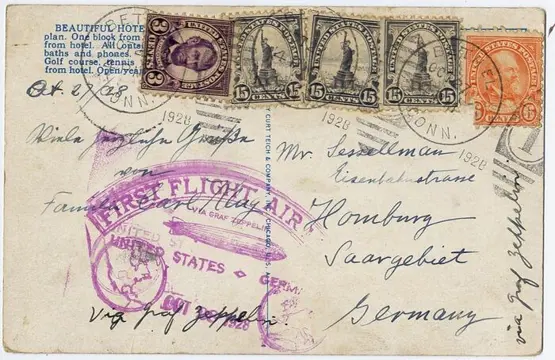 BEAUTIFUL HOTE
plan. One block from
from hotel. All
baths and phones.
Golf course, tennis
from hotel. Open year
CONN.
1928
UNITED STATES POSTAGE
3 CENTS 3
UNITED STATES POSTAGE
15 CENTS 15
UNITED STATES POSTAGE
15 CENTS 15
UNITED STATES POSTAGE
15 CENTS 15
1928
CONN.
1928
UNITED STATES POSTAGE
CENTS
Oct 27/28
Viele herzliche Grüße
von
Familie Carl Klug
CURT TEICH & COMPANY, INC., CHICAGO, U.S.A.
Mr. Sesselmann
Eisenbahnstrasse
Homburg
Saargebiet
Germany
FIRST FLIGHT AIR
VIA GRAF ZEPPELIN
UNITED STATES GERM
OCT 1928
via Graf Zeppelin.
via Graf Zeppelin